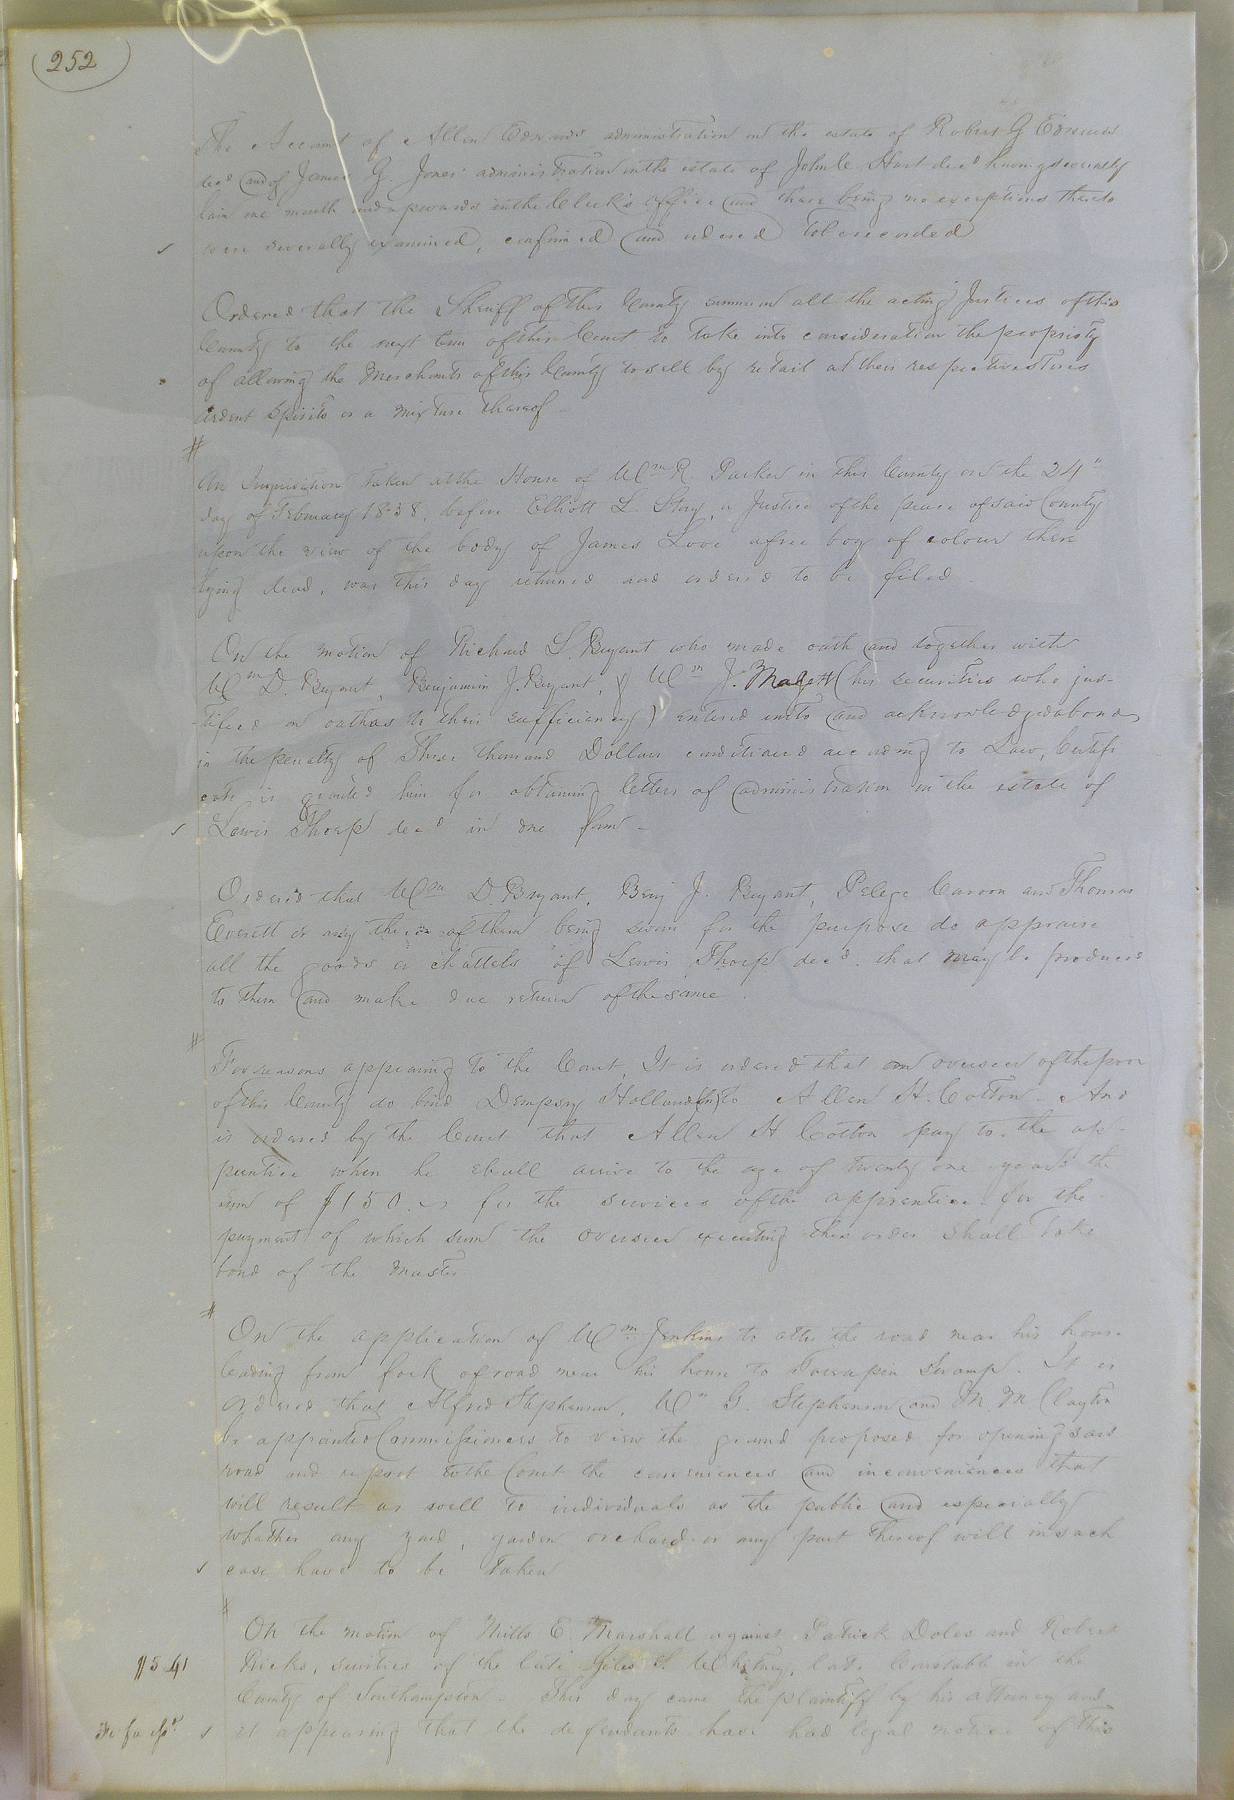 252
The Account of Allen Edwards administration on the estate of Robert G Edwards
decd and of James G. Jones' administration on the estate of John C Hart decd having severally
lain one month and upwards in the Clerk's office and there being no exceptions thereto
were severally examined, confirmed and ordered to be recorded
Ordered that the Sheriff of this County summon all the acting Justices of this
County to the next term of this Court to take into consideration the propriety
of allowing the Merchants of this County to sell by retail at their respective stores
ardent spirits or a mixture thereof
An Inquisition taken at the House of Wm R. Parker in this County on the 24th
day of February 1838, before Elliott L. Story, a Justice of the peace of said County
upon the view of the body of James Love a free boy of colour there
lying dead, was this day returned and ordered to be filed
On the motion of Richard L. Bryant who made oath and together with
Wm D. Bryant, Benjamin J. Bryant, & Wm J. (his securities who jus-
tified on oath as to their sufficiency) entered into and acknowledged a bond
in the penalty of Three thousand Dollars conditioned according to Law, Certifi
cate is granted him for obtaining letters of administration on the estate of
Lewis Thorp decd in due form -
Ordered that Wm D. Bryant, Benj J. Bryant, Pelege Carson and Thomas
Everett or any three of them being sworn for the purpose do appraise
all the goods & chattels of Lewis Thorp decd. that may be produced
to them and make due return of the same.
For reasons appearing to the Court, It is ordered that an overseer of the poor
of this County do bind Dempsey Holland (fn) to Allen H. Cotton. And
is ordered by the Court that Allen H Cotton pay to the ap-
prentice when he shall arrive to the age of twenty one years the
sum of $150. for the services of the apprentice for the
payment of which sum the overseer executing this order shall take
bond of the master
On the application of Wm Jenkins to alter the road near his house
leading from fork of road near his house to Tarrapin Swamp. It is
ordered that Alfred Stephenson, Wm G. Stephenson and M M Clayton
be appointed Commissioners to view the ground proposed for opening said
road and report to the Court the conveniences and inconveniences that
will result as well to individuals as the public and especially
whether any yard, garden orchard or any part thereof will in such
case have to be taken
On the motion of Mills E. Marshall against Patrick Doles and Robert
$5.41 Ricks, sureties of the late Giles S. Whitney, late Constable in the
County of Southampton. This day came the plaintiff by his attorney and
Fi fa it appearing that the defendants have had legal notice of this